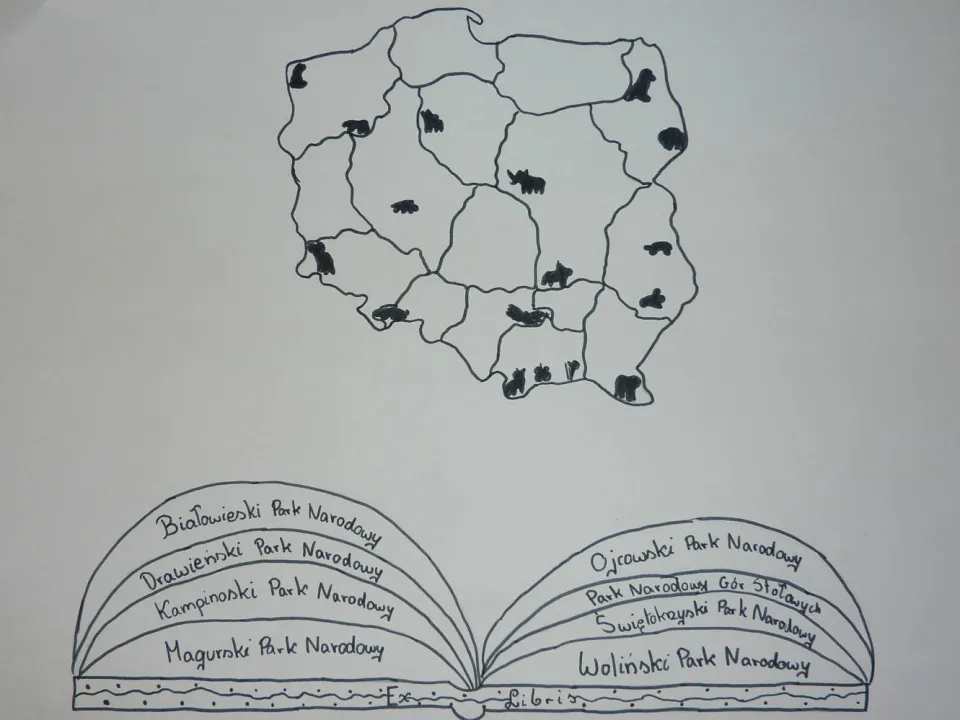 Białowieski Park Narodowy
Drawieński Park Narodowy
Kampinoski Park Narodowy
Magurski Park Narodowy
Ojcowski Park Narodowy
Park Narodowy Gór Stołowych
Świętokrzyski Park Narodowy
Woliński Park Narodowy
Ex Libris